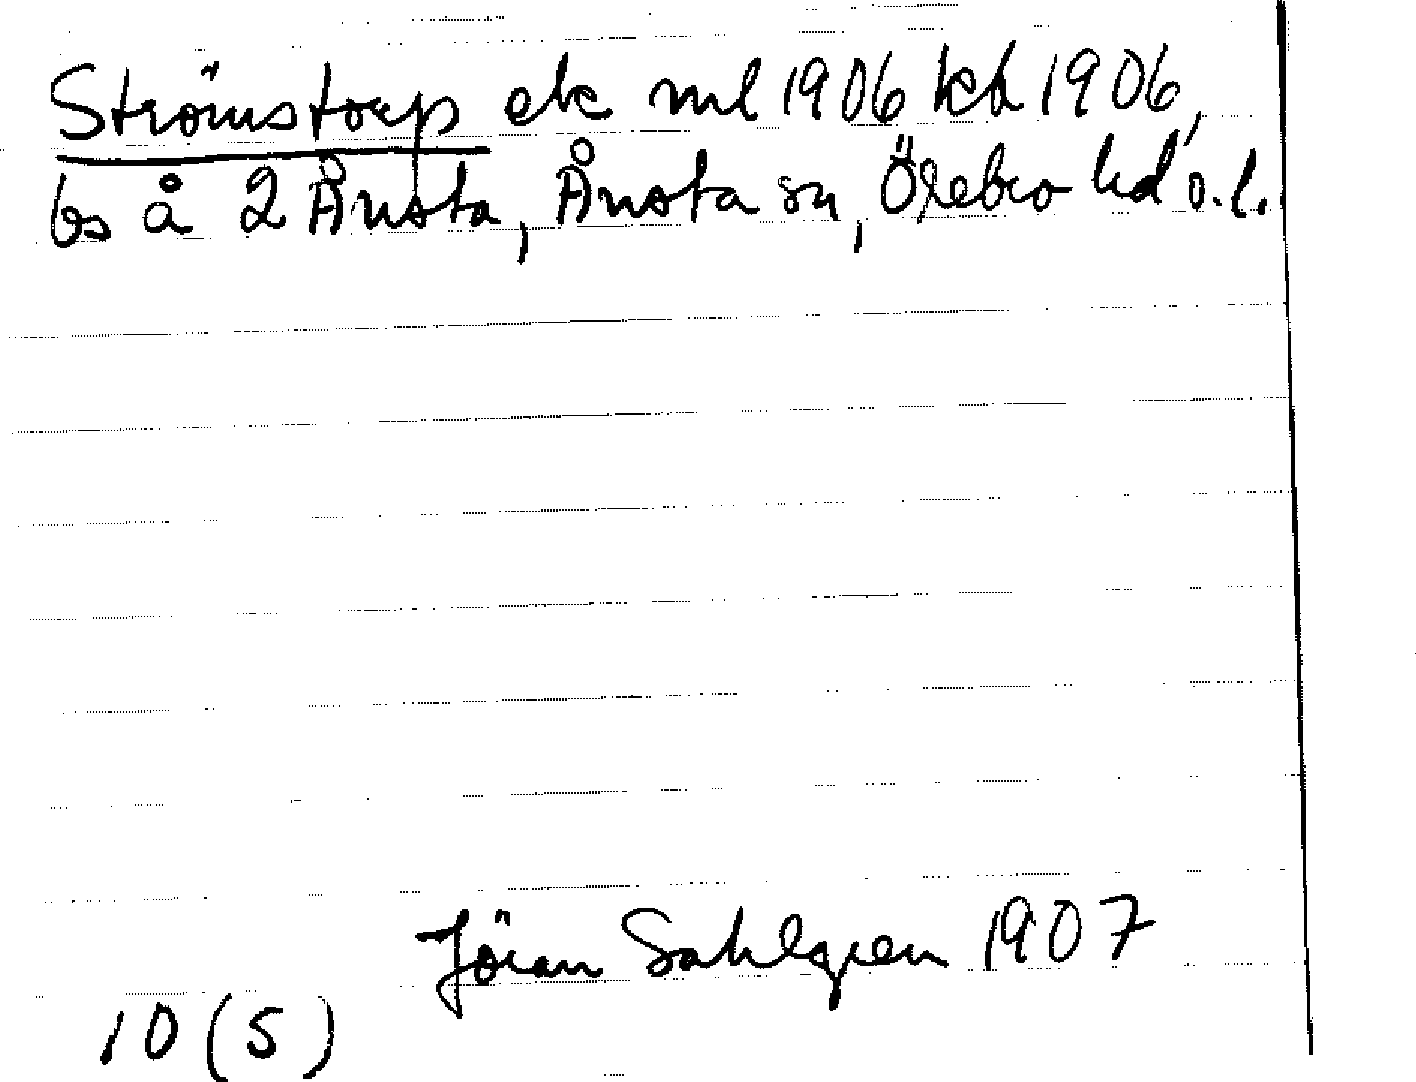 Strömstorp ek ml 1906 kb 1906,
bs å 2 Ånsta, Ånsta sn, Örebro hd ö.l.
Jöran Sahlgren 1907
10 (5)